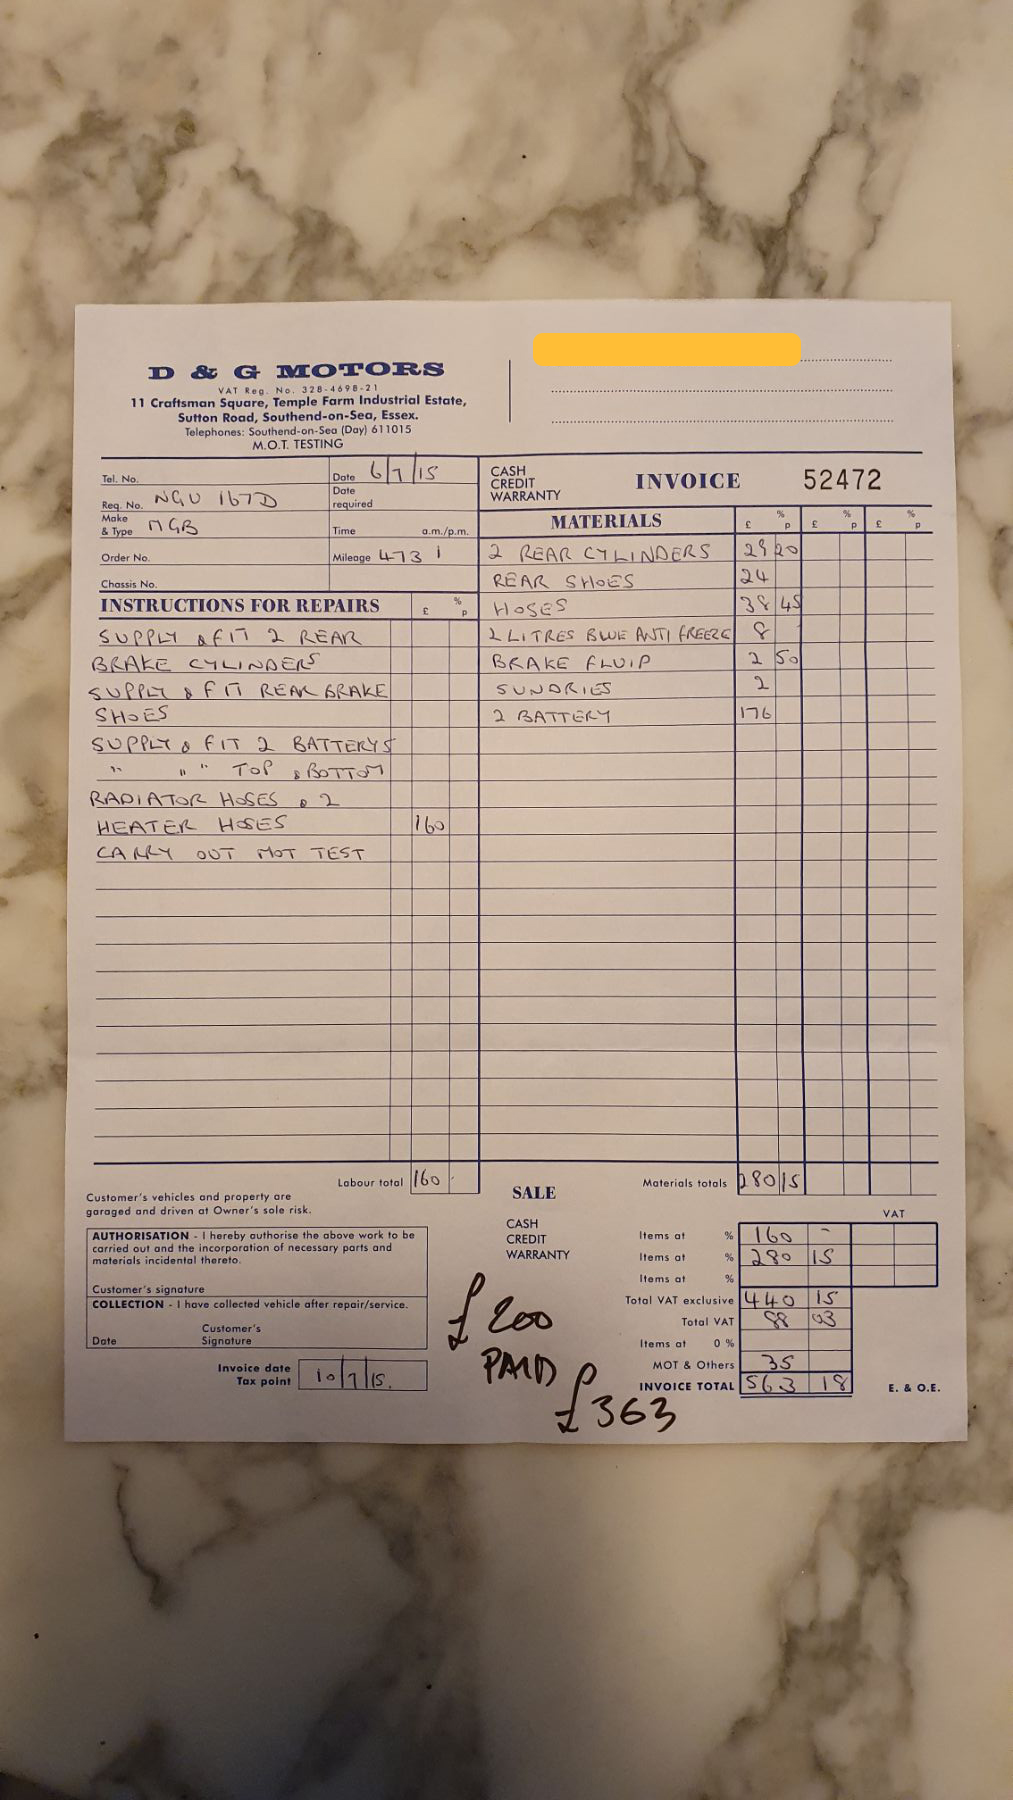 D & G MOTORS
VAT Reg. No. 328-4698-21
11 Craftsman Square, Temple Farm Industrial Estate,
Sutton Road, Southend-on-Sea, Essex.
Telephones: Southend-on-Sea (Day) 611015
M.O.T. TESTING
Tel. No.
Date 6/7/15
Req. No. NGU 167D
Date required
Make & Type MGB
Time a.m./p.m.
Order No.
Mileage 4731
Chassis No.
CASH
CREDIT
WARRANTY
INVOICE 52472
INSTRUCTIONS FOR REPAIRS £ % p
SUPPLY & FIT 2 REAR
BRAKE CYLINDERS
SUPPLY & FIT REAR BRAKE
SHOES
SUPPLY & FIT 2 BATTERYS
" " " TOP & BOTTOM
RADIATOR HOSES & 2
HEATER HOSES 160
CARRY OUT MOT TEST
MATERIALS £ % p £ % p £ % p
2 REAR CYLINDERS 29 20
REAR SHOES 24
HOSES 38 45
2 LITRES BLUE ANTI FREEZE 8
BRAKE FLUID 2 50
SUNDRIES 2
2 BATTERY 176
Labour total 160
Materials totals 280 15
Customer's vehicles and property are
garaged and driven at Owner's sole risk.
AUTHORISATION - I hereby authorise the above work to be
carried out and the incorporation of necessary parts and
materials incidental thereto.
Customer's signature
COLLECTION - I have collected vehicle after repair/service.
Date Customer's Signature
Invoice date
Tax point 10/7/15.
SALE
CASH
CREDIT
WARRANTY
VAT
Items at % 160 -
Items at % 280 15
Items at %
Total VAT exclusive 440 15
Total VAT 88 03
Items at 0 %
MOT & Others 35
INVOICE TOTAL 563 18
E. & O.E.
£200
PAID
£363